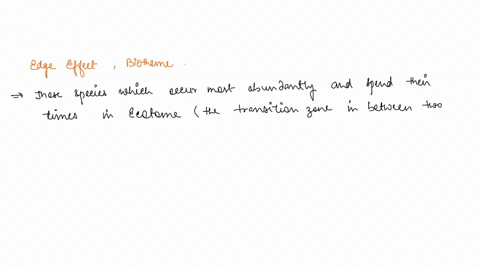 Edge Effect , Biotieme .
⇒ These species which occur most abundantly and spend their
times in Ecotome ( the transition zone in between two